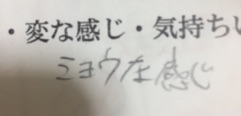 ・変な感じ・気持ち
ミョウな感じ